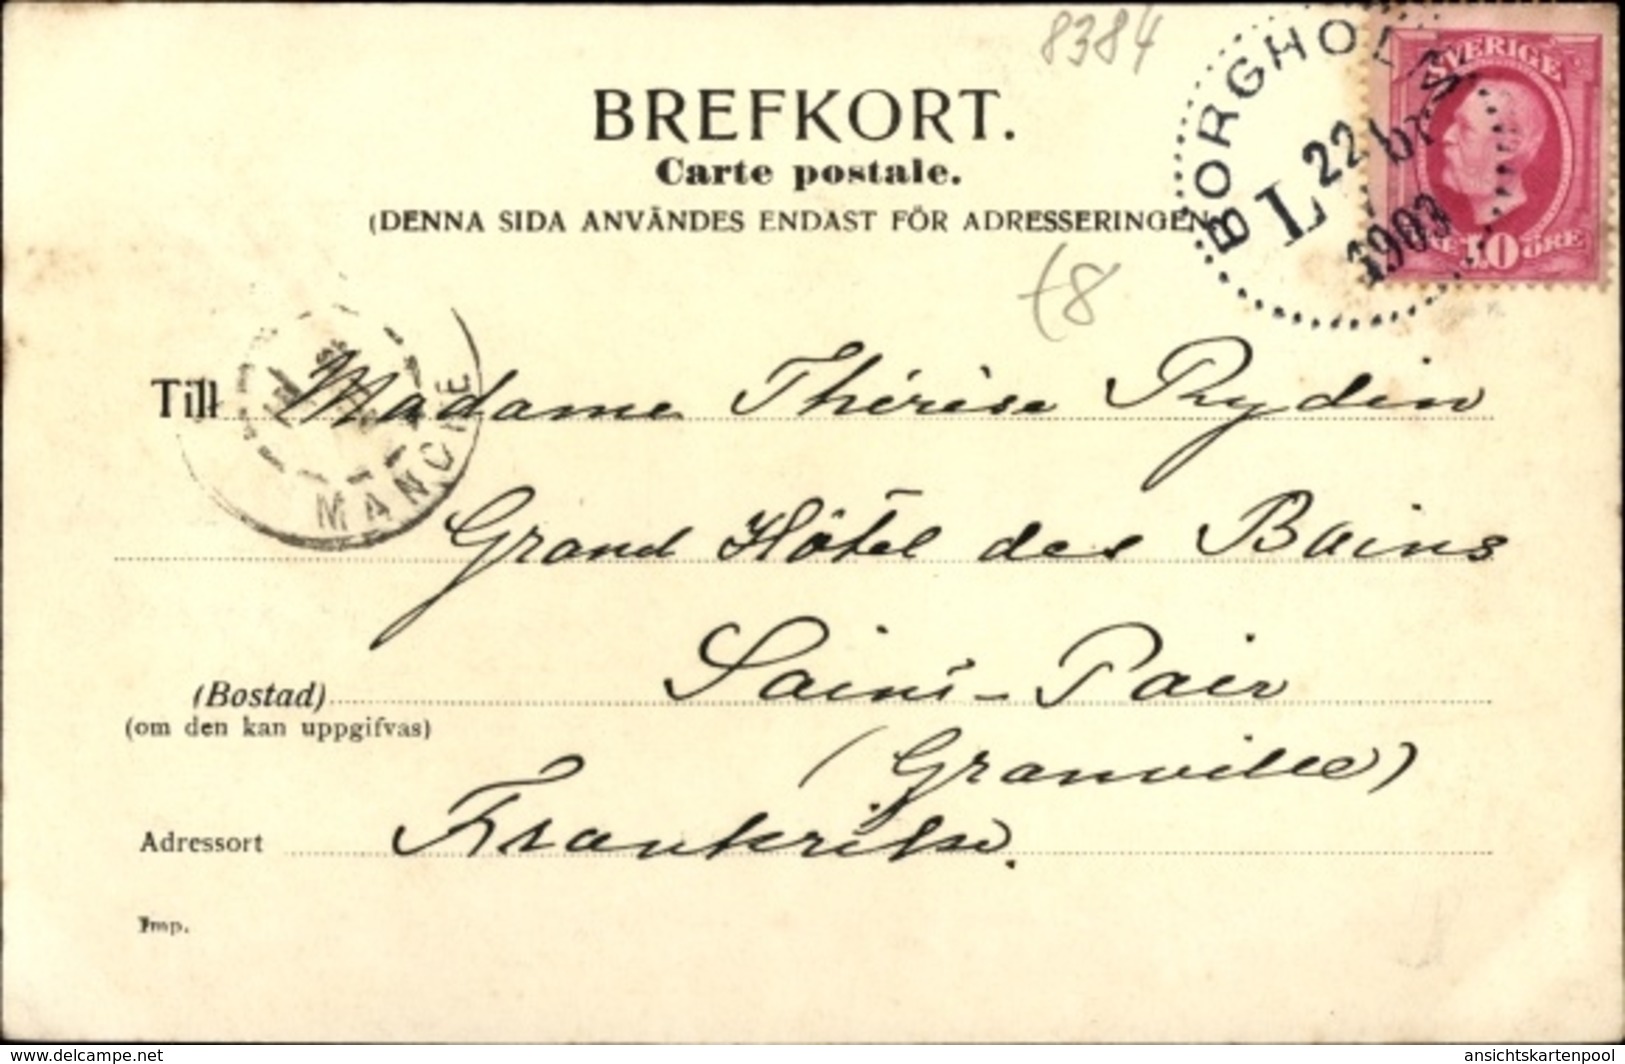 8384
BREFKORT.
Carte postale.
(DENNA SIDA ANVÄNDES ENDAST FÖR ADRESSERINGEN
BORGHOLM
L 22
1903
SVERIGE
10 ÖRE
+8
Till Madame Thérèse Rydin
MANCHE
Grand Hôtel des Bains
(Bostad) Saint-Pair
(om den kan uppgifvas)
(Granville)
Adressort Frankrike.
Imp.
www.delcampe.net
ansichtskartenpool